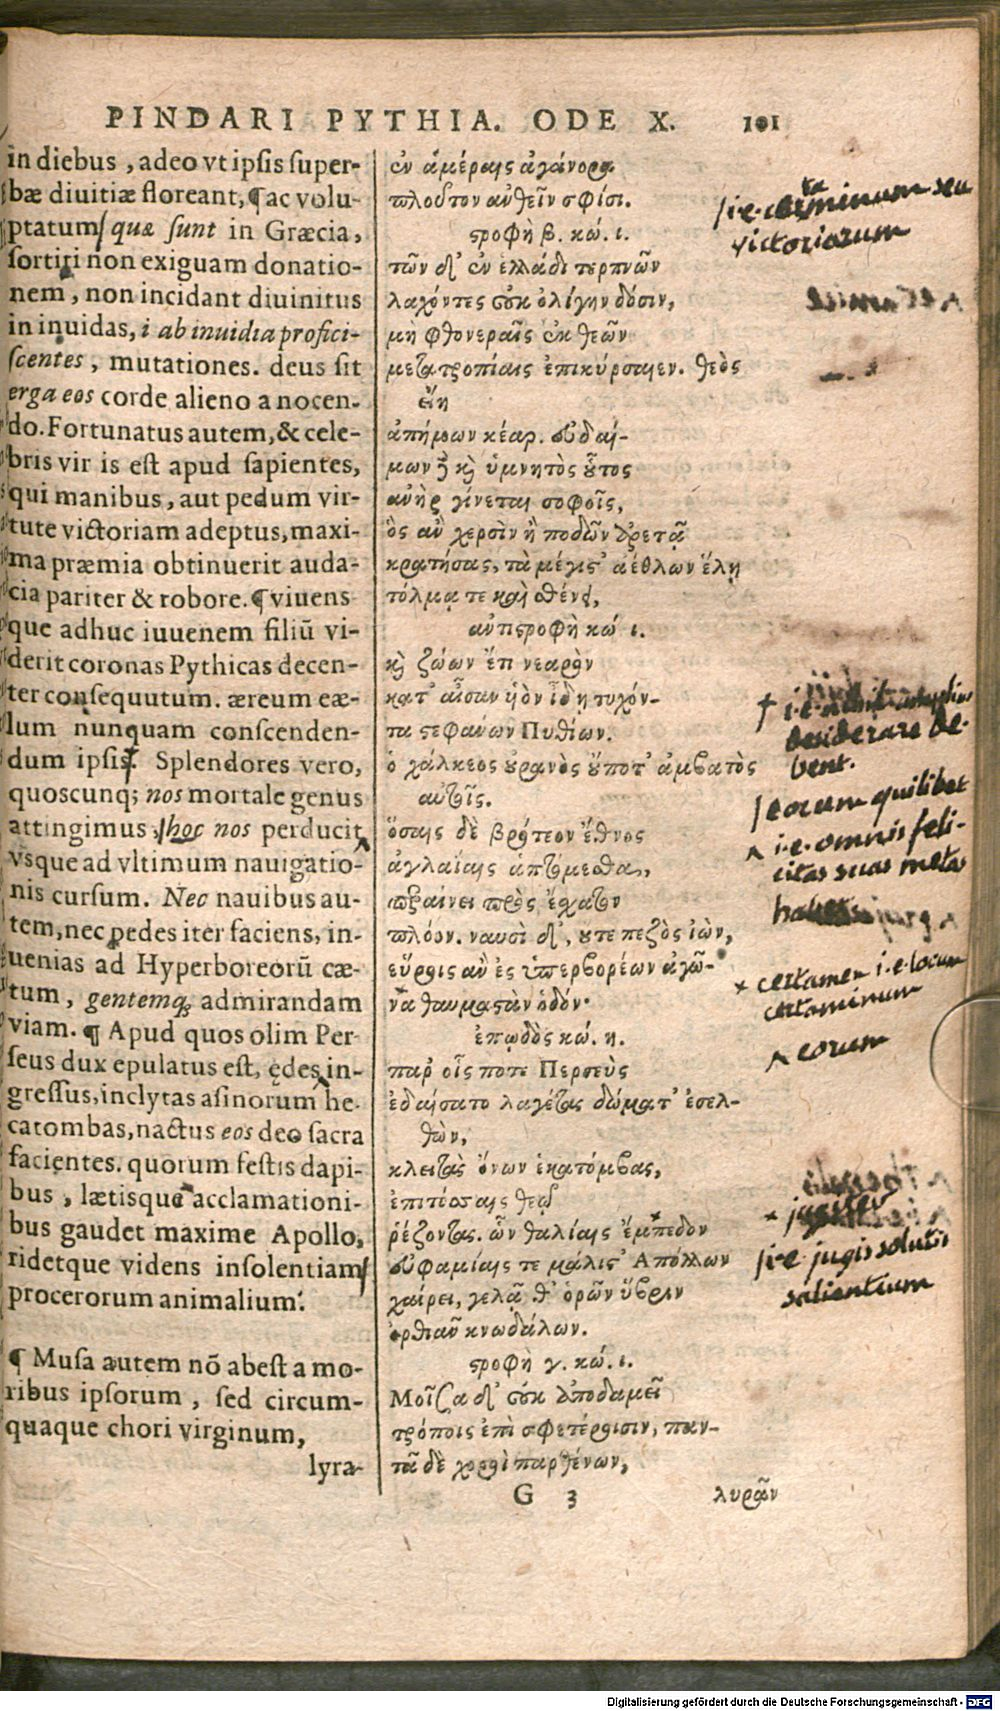 PINDARI PYTHIA. ODE X. 101
in diebus, adeo vt ipsis super-
bæ diuitiæ floreant, ¶ ac volu-
ptatum quæ sunt in Græcia,
sortiti non exiguam donatio-
nem, non incidant diuinitus
in inuidas, i ab inuidia profici-
scentes, mutationes. deus sit
erga eos corde alieno a nocen-
do. Fortunatus autem, & cele-
bris vir is est apud sapientes,
qui manibus, aut pedum vir-
tute victoriam adeptus, maxi-
ma præmia obtinuerit auda-
cia pariter & robore. ¶ viuens
que adhuc iuuenem filiū vi-
derit coronas Pythicas decen-
ter consequutum. æreum cæ-
lum nunquam conscenden-
dum ipsis. Splendores vero,
quoscunq; nos mortale genus
attingimus, hoc nos perducit
vsque ad vltimum nauigatio-
nis cursum. Nec nauibus au-
tem, nec pedes iter faciens, in-
uenias ad Hyperboreorū cæ-
tum, gentemq; admirandam
viam. ¶ Apud quos olim Per-
seus dux epulatus est, ędes in-
gressus, inclytas asinorum he-
catombas, nactus eos deo sacra
facientes. quorum festis dapi-
bus, lætisque acclamationi-
bus gaudet maxime Apollo,
ridetque videns insolentiam
procerorum animalium.
¶ Musa autem nō abest a mo-
ribus ipsorum, sed circum-
quaque chori virginum,
lyra-
ἐν ἁμέραις ἀγάνορα
πλοῦτον ἀνθεῖν σφίσι.
στροφὴ β. κώ. ι.
τῶν δ' ἐν ἑλλάδι τερπνῶν
λαχόντες οὐκ ὀλίγην δόσιν,
μὴ φθονεραῖς ἐκ θεῶν
μετατροπίαις ἐπικύρσαιεν. θεὸς
εἴη
ἀπήμων κέαρ. εὐδαί-
μων δὲ καὶ ὑμνητὸς οὗτος
ἀνὴρ γίνεται σοφοῖς,
ὃς ἂν χερσὶν ἢ ποδῶν ἀρετᾷ
κρατήσας, τὰ μέγιστ' ἀέθλων ἕλῃ
τόλμᾳ τε καὶ σθένει,
ἀντιστροφὴ κώ ι.
καὶ ζώων ἔτι νεαρὸν
κατ' αἶσαν υἱὸν ἴδῃ τυχόν-
τα στεφάνων Πυθίων.
ὁ χάλκεος οὐρανὸς οὔποτ' ἀμβατὸς
αὐτοῖς.
ὅσαις δὲ βρότεον ἔθνος
ἀγλαίαις ἁπτόμεσθα,
περαίνει πρὸς ἔσχατον
πλόον. ναυσὶ δ', οὔτε πεζὸς ἰὼν,
εὕροις ἂν ἐς ὑπερβορέων ἀγῶ-
να θαυμαστὰν ὁδόν·
ἐπῳδὸς κώ. η.
παρ' οἷς ποτε Περσεὺς
ἐδαίσατο λαγέτας δώματ' ἐσελ-
θὼν,
κλειτὰς ὄνων ἑκατόμβας,
ἐπιτόσσαις θεῷ
ῥέζοντας. ὧν θαλίαις ἔμπεδον
εὐφαμίαις τε μάλιστ' Απόλλων
χαίρει, γελᾷ θ' ὁρῶν ὕβριν
ὀρθίαν κνωδάλων.
στροφὴ γ. κώ. ι.
Μοῖσα δ' οὐκ ἀποδαμεῖ
τρόποις ἐπὶ σφετέροισιν, παν-
τᾶ δὲ χοροὶ παρθένων,
G 3 λυρᾶν
i.e. certaminum seu
victoriarum
† i.e.
desiderare de-
bent.
eorum quilibet
i.e. omnis feli-
citas suas metas
× certamen i.e. locum
certaminum
eorum
× jugiter
i.e. jugis solutis
salientium
Digitalisierung gefördert durch die Deutsche Forschungsgemeinschaft - DFG